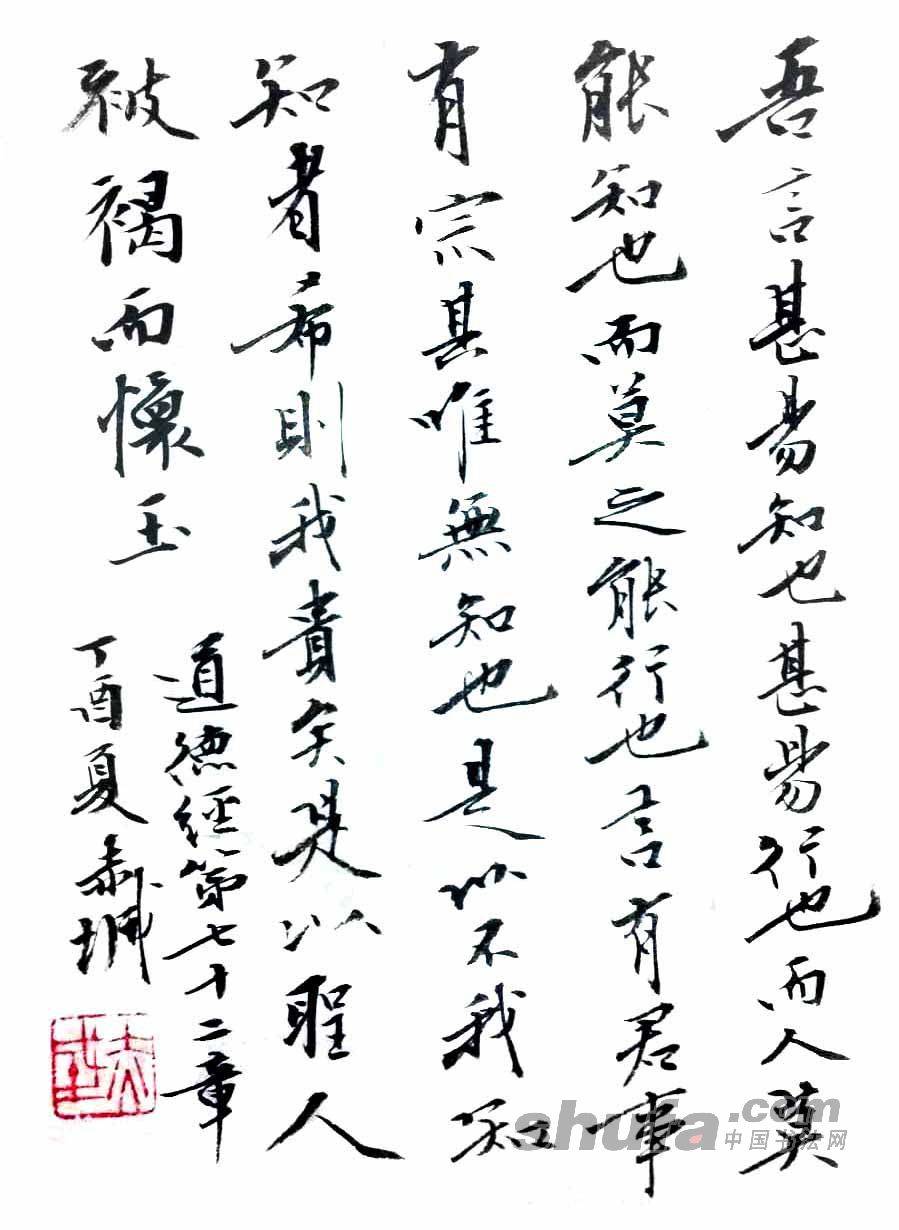 吾言甚易知也甚易行也而人莫
能知也而莫之能行也言有君事
有宗其唯無知也是以不我知
知者希則我貴矣是以聖人
被褐而懷玉
道德經第七十二章
丁酉夏
shufa.com
中国书法网